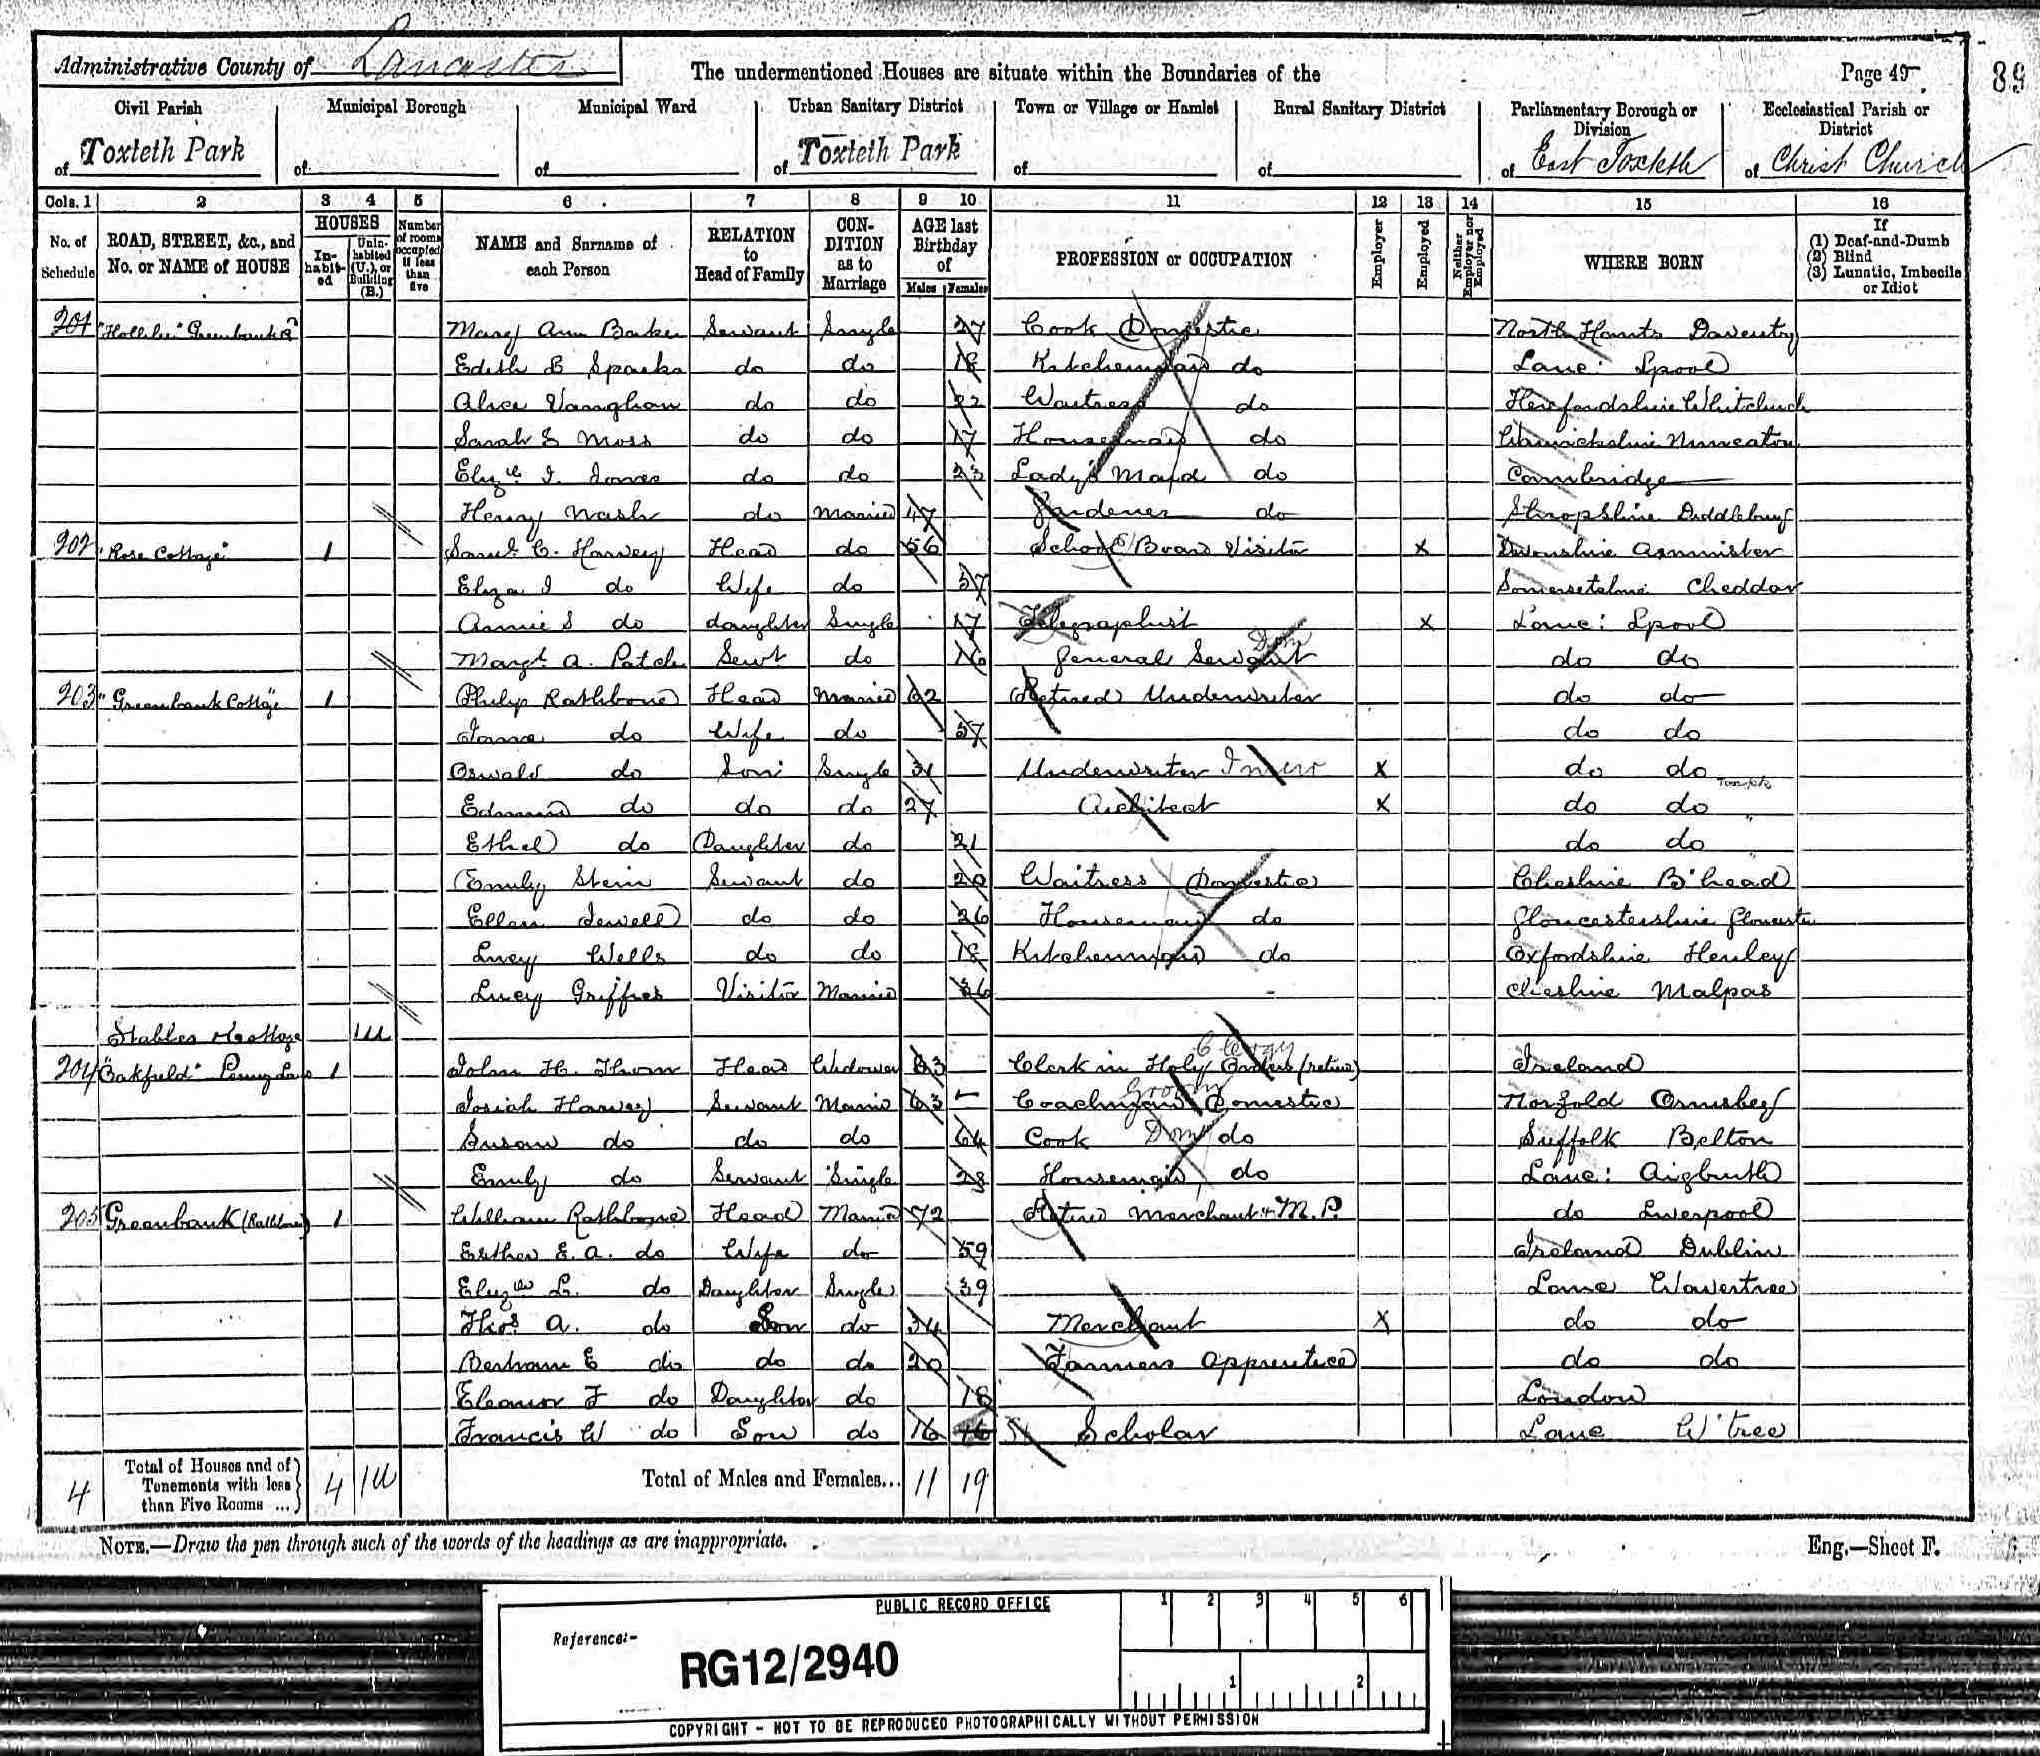 Administrative County of Lancaster
The undermentioned Houses are situate within the Boundaries of the
Page 49
89
Civil Parish of Toxteth Park
Municipal Borough of
Municipal Ward of
Urban Sanitary District of Toxteth Park
Town or Village or Hamlet of
Rural Sanitary District of
Parliamentary Borough or Division of East Toxteth
Ecclesiastical Parish or District of Christ Church
Cols. 1 2 3 4 5 6 7 8 9 10 11 12 13 14 15 16
No. of Schedule
ROAD, STREET, &c., and No. or NAME of HOUSE
HOUSES
Inhabited
Uninhabited (U.), or Building (B.)
Number of rooms occupied if less than five
NAME and Surname of each Person
RELATION to Head of Family
CONDITION as to Marriage
AGE last Birthday of
Males Females
PROFESSION or OCCUPATION
Employer
Employed
Neither Employer nor Employed
WHERE BORN
If (1) Deaf-and-Dumb (2) Blind (3) Lunatic, Imbecile or Idiot
201 Greenbank Mary Ann Baker Servant Single 27 Cook Domestic North Hants Daventry
Edith B Sparks do do 18 Kitchenmaid do Lanc: Lpool
Alice Vaughan do do 22 Waitress do Herefordshire Whitchurch
Sarah E Moss do do 17 Housemaid do Warwickshire Nuneaton
Elizth I. Jones do do 23 Lady's Maid do Cambridge
Henry Nash do Married 47 Gardener do Shropshire Diddlebury
202 "Rose Cottage" 1 Saml. C. Harvey Head do 56 School Board Visitor X Devonshire Axminster
Eliza I do Wife do 57 Somersetshire Cheddar
Annie S do daughter Single 17 Telegraphist X Lanc: Lpool
Margt. A. Patch Servt do 16 General Servant Dom do do
203 "Greenbank Cottge" 1 Philip Rathbone Head Married 62 Retired Underwriter do do
Jane do Wife do 57 do do
Oswald do Son Single 31 Underwriter X do do
Edmund do do do 27 Architect X do do
Ethel do Daughter do 21 do do
Emily Stein Servant do 20 Waitress Domestic Cheshire B'head
Ellen Jewell do do 26 Housemaid do Gloucestershire Gloucester
Lucy Wells do do 18 Kitchenmaid do Oxfordshire Henley
Lucy Griffies Visitor Married 36 Cheshire Malpas
Stables 1U
204 "Oakfield" Penny Lane 1 John H. Thom Head Widower 83 Clerk in Holy Orders (retired) Clergy Ireland
Josiah Harvey Servant Married 63 Coachman Domestic Groom Norfold Ormsbey
Susan do do do 64 Cook Dom do Suffolk Belton
Emily do Servant Single 28 Housemaid do Lanc: Aigburth
205 Greenbank 1 William Rathbone Head Married 72 Retired Merchant + M.P. do Liverpool
Esther E. A. do Wife do 59 Ireland Dublin
Elizth L. do Daughter Single 39 Lanc Wavertree
Thos. A. do Son do 34 Merchant X do do
Bertram E do do do 20 Farmers Apprentice do do
Eleanor F do Daughter do 18 London
Francis W do Son do 16 Scholar Lanc W'tree
4 Total of Houses and of Tenements with less than Five Rooms ... 4 1U Total of Males and Females... 11 19
NOTE.—Draw the pen through such of the words of the headings as are inappropriate.
Eng.—Sheet F.
PUBLIC RECORD OFFICE
1 2 3 4 5 6
Reference:-
RG12/2940
1 2
COPYRIGHT - NOT TO BE REPRODUCED PHOTOGRAPHICALLY WITHOUT PERMISSION